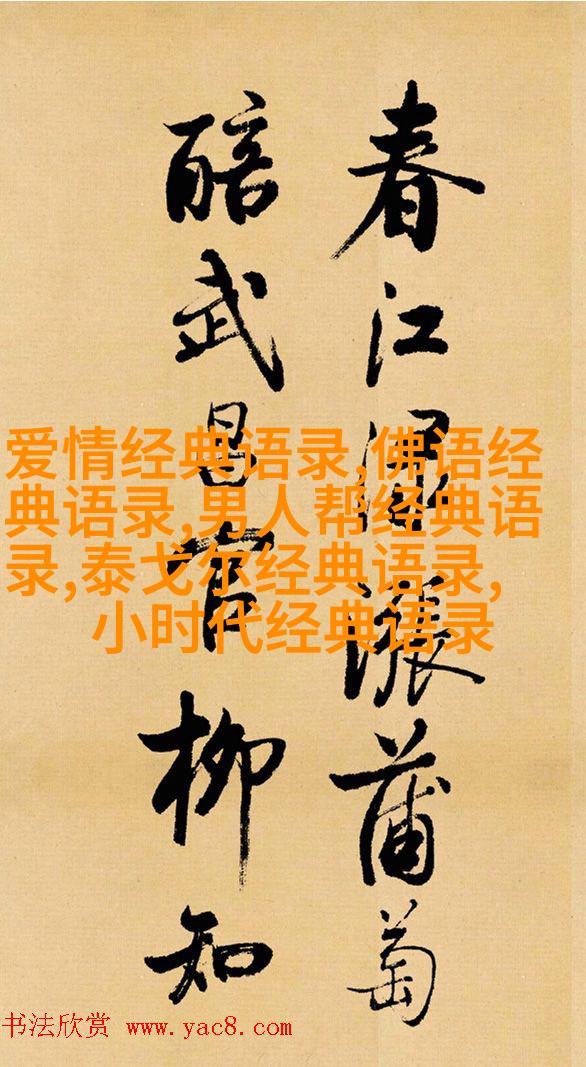 春江渌漲蒲萄
醅武昌官柳知
爱情经典语录,佛语经
典语录,男人帮经典语
录,泰戈尔经典语录,
小时代经典语录
书法欣赏 www.yac8.com